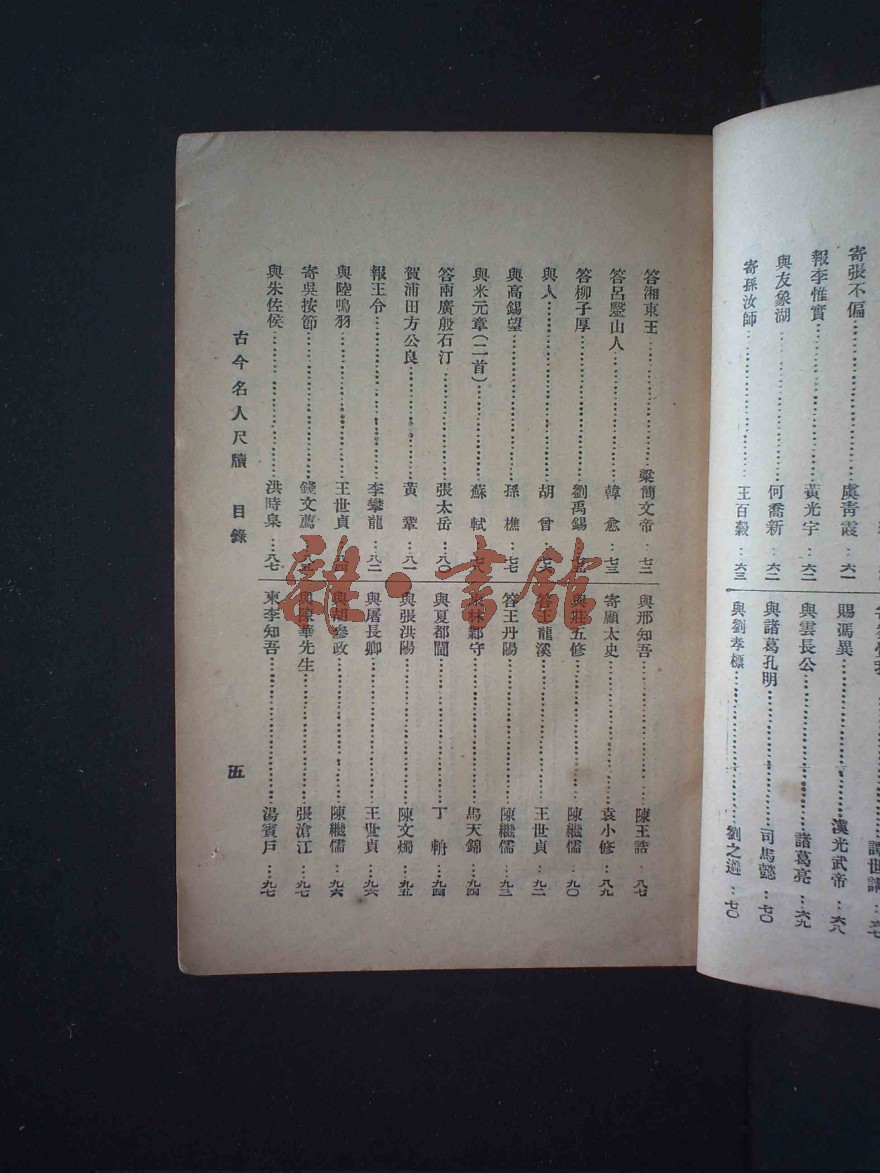 寄張不偏……虞青霞…六一
報李惟實……黃光宇…六二
與友象湖……何喬新…六二
寄孫汝師……王百穀…六三
賜馮異……漢光武帝…六八
與雲長公……諸葛亮…六九
與諸葛孔明……司馬懿…七〇
與劉孝標……劉之遴…七〇
答湘東王……梁簡文帝…七二
答呂毉山人……韓愈…七三
答柳子厚……劉禹錫
與人……胡曾
與高錫望……孫樵…七七
與米元章(二首)……蘇軾…七八
答兩廣殷石汀……張太岳…八〇
賀浦田方公良……黃鞏…八一
報王令……李攀龍…八二
與陸鳴羽……王世貞…八四
寄吳按節……錢文薦
與朱佐侯……洪時臯…八七
與邢知吾……陳王誥…八七
寄顧太史……袁小修…八九
與莊五修……陳繼儒…九〇
答王龍溪……王世貞…九二
答王丹陽……陳繼儒…九三
林鄴守……馬天錦…九四
與夏都閫……丁…九四
與張洪陽……陳文燭…九五
與屠長卿……王世貞…九六
與胡參政……陳繼儒…九六
與陳華先生……張滄江…九七
柬李知吾……湯賓尹…九七
古今名人尺牘 目錄
五
雜·書館